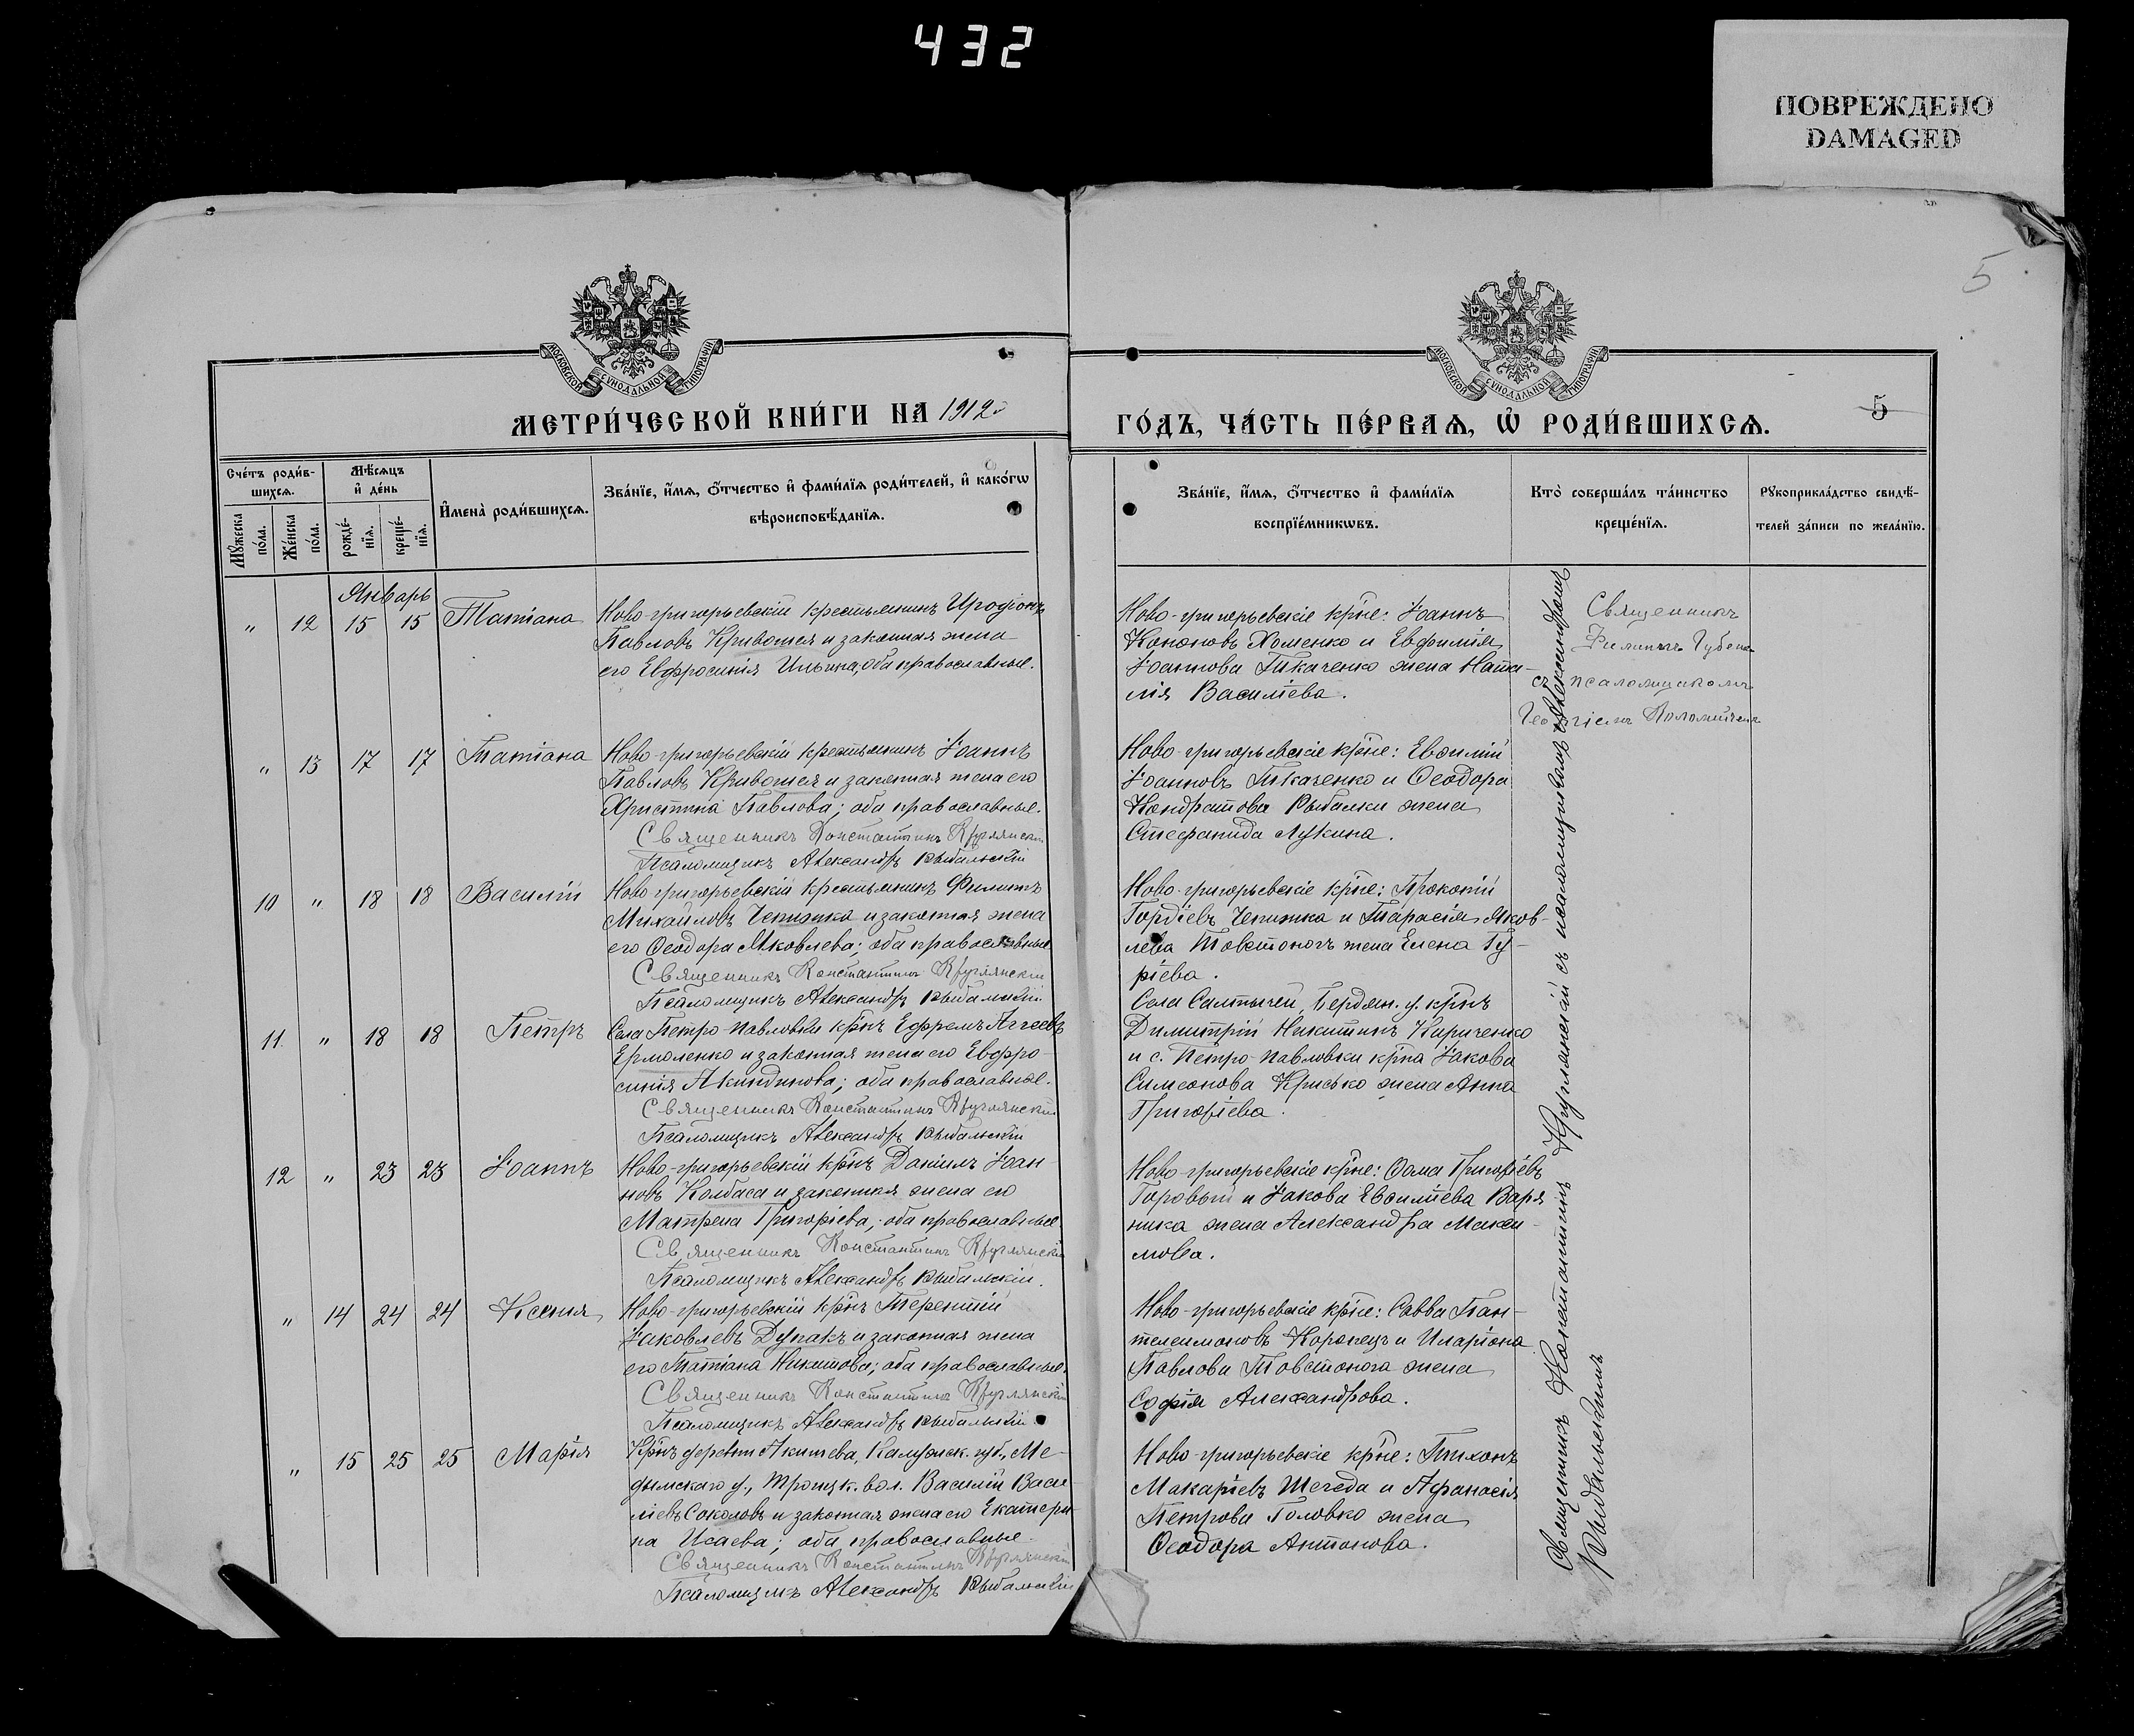 432
ПОВРЕЖДЕНО
DAMAGED
5
МОСКОВСКОЙ СУНОДАЛЬНОЙ ТИПОГРАФІИ
МОСКОВСКОЙ СУНОДАЛЬНОЙ ТИПОГРАФІИ
МЕТРИ́ЧЕСКОЙ КНИ́ГИ НА 1912
ГО́ДЪ, ЧА́СТЬ ПЕ́РВАѦ, Ѡ҆ РОДИ́ВШИХСѦ.
5
Сче́тъ роди́в-
шихсѧ.
Мѣ́сѧцъ
и҆ де́нь
И҆мена̀ роди́вшихсѧ.
Зва́нїе, и҆́мѧ, о҆́тчество и҆ фами́лїѧ роди́телей, и҆ како́гѡ
вѣроисповѣ́данїѧ.
Мꙋ́жеска
по́ла.
Же́нска
по́ла.
рожде́-
нїѧ.
креще́-
нїѧ.
Зва́нїе, и҆́мѧ, о҆́тчество и҆ фами́лїѧ
воспрїе́мникѡвъ.
Кто̀ соверша́лъ та́инство
креще́нїѧ.
Рꙋкоприкла́дство свидѣ́-
телей за́писи по жела́нїю.
Январь
" 12 15 15 Татіана
Ново-григорьевскій крестьянинъ Иродіонъ
Павловъ Кривошея и законная жена
его Евфросинія Ильина, оба православные.
Ново-григорьевскіе кр-не: Іоаннъ
Кононовъ Хоменко и Евфимія
Іоаннова Ткаченко жена Ната-
лія Василіева.
Священникъ
Филиппъ Губенко
съ псаломщикомъ
Георгіемъ
" 13 17 17 Татіана
Ново-григорьевскій крестьянинъ Іоаннъ
Павловъ Кривошея и законная жена его
Христина Павлова; оба православные.
Священникъ Константинъ Круглянскій
Псаломщикъ Александръ Рыбальскій
Ново-григорьевскіе кр-не: Евсилій
Іоанновъ Ткаченко и Ѳеодора
Кондратова Рыбалки жена
Стефанида Лукина.
10 " 18 18 Василій
Ново-григорьевскій крестьянинъ Филиппъ
Михаиловъ Чепижка и законная жена
его Ѳеодора Яковлева; оба православные
Священникъ Константинъ Круглянскій
Псаломщикъ Александръ Рыбальскій
Ново-григорьевскіе кр-не: Прокопій
Гордіевъ Чепижка и Тарасія Яков-
лева Товстоногъ жена Елена Гу-
ріева.
11. " 18 18 Петръ
Села Петро-павловки кр-нъ Ефремъ Аггеевъ
Ермоленко и законная жена его Евфро-
синія Акиндинова; оба православные.
Священникъ Константинъ Круглянскій
Псаломщикъ Александръ Рыбальскій
Села Салтычеи, Бердян. у. кр-нъ
Димитрій Никитинъ Кириченко
и с. Петро-павловки кр-на Іакова
Симеонова Крисько жена Анна
Григоріева.
12 " 23 23 Іоаннъ
Ново-григорьевскій кр-нъ Даніилъ Іоан-
новъ Колбаса и законная жена его
Матрена Григоріева; оба православные
Священникъ Константинъ Круглянскій
Псаломщикъ Александръ Рыбальскій.
Ново-григорьевскіе кр-не: Ѳома Григоріевъ
Горовый и Іакова Евсиліева Варя
ника жена Александра Макси-
мова.
" 14 24 24 Ксенія
Ново-григорьевскій кр-нъ Терентій
Іаковлевъ Дупакъ и законная жена
его Татіана Никитова; оба православные.
Священникъ Константинъ Круглянскій
Псаломщикъ Александръ Рыбальскій
Ново-григорьевскіе кр-не: Савва Пан-
телеимоновъ Коронецъ и Иларіона
Павлова Товстонога жена
Софія Александрова.
" 15 25 25 Марія
Кр-нъ деревни Акишева, Калужск. губ., Ме-
дынскаго у., Троицк. вол. Василій Васи-
ліевъ Соколовъ и законная жена его Екатери-
на Исаева; оба православные.
Священникъ Константинъ Круглянскій
Псаломщикъ Александръ Рыбальскій
Ново-григорьевскіе кр-не: Тихонъ
Макаріевъ Шегеда и Афанасія
Петрова Головко жена
Ѳеодора Антонова.
Священникъ Константинъ Круглянскій съ псаломщикомъ Александромъ
Рыбальскимъ